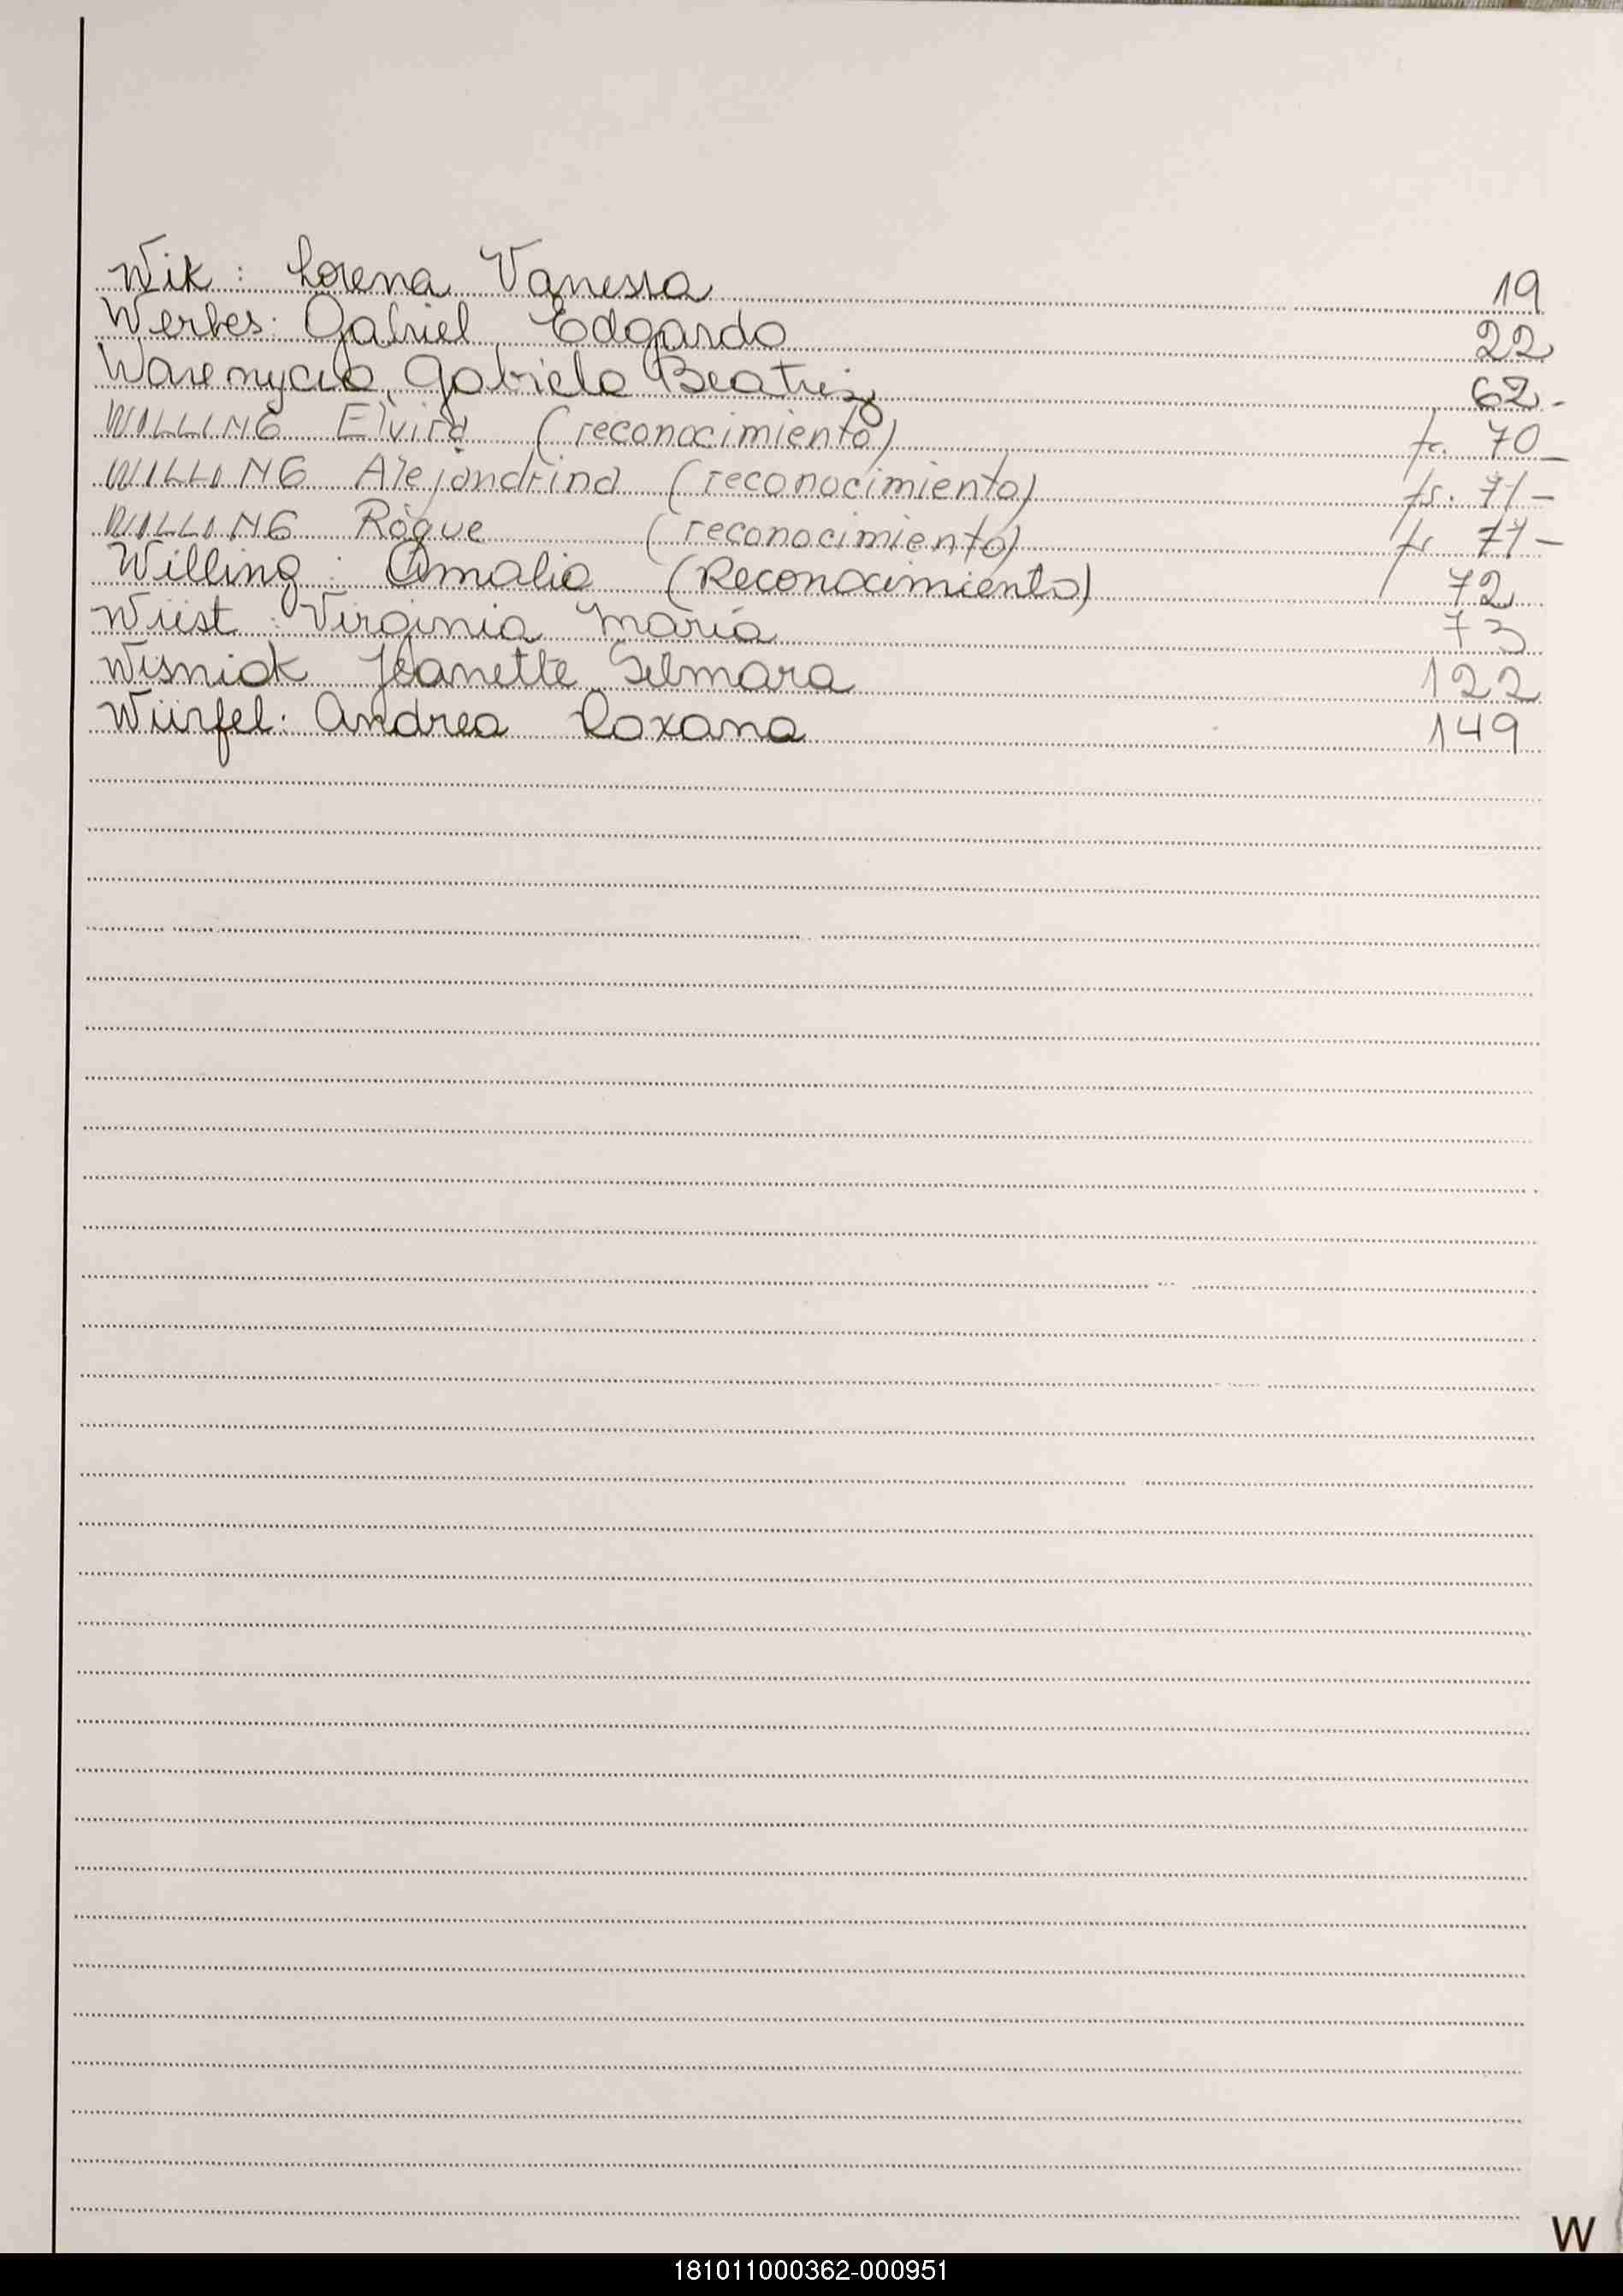 Wik: Lorena Vanessa 19
Werbes: Gabriel Edgardo 22
Gabriela Beatriz 62-
WILLING Elvira (reconocimiento) fs. 70-
WILLING Alejandrina (reconocimiento) fs. 71-
WILLING Roque (reconocimiento) fs 71-
Willing: Amalia (Reconocimiento) 72
Wüst: Virginia María 73
Wisniok Jeanette Silmara 122
Würfel: Andrea Roxana 149
W
181011000362-000951